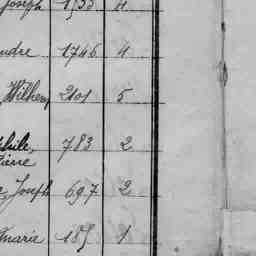 Joseph 1533 4
ndre 1746 4
Wilhem 2101 5
phile, 783 2
Pierre
, Joseph 697 2
marie 185 1